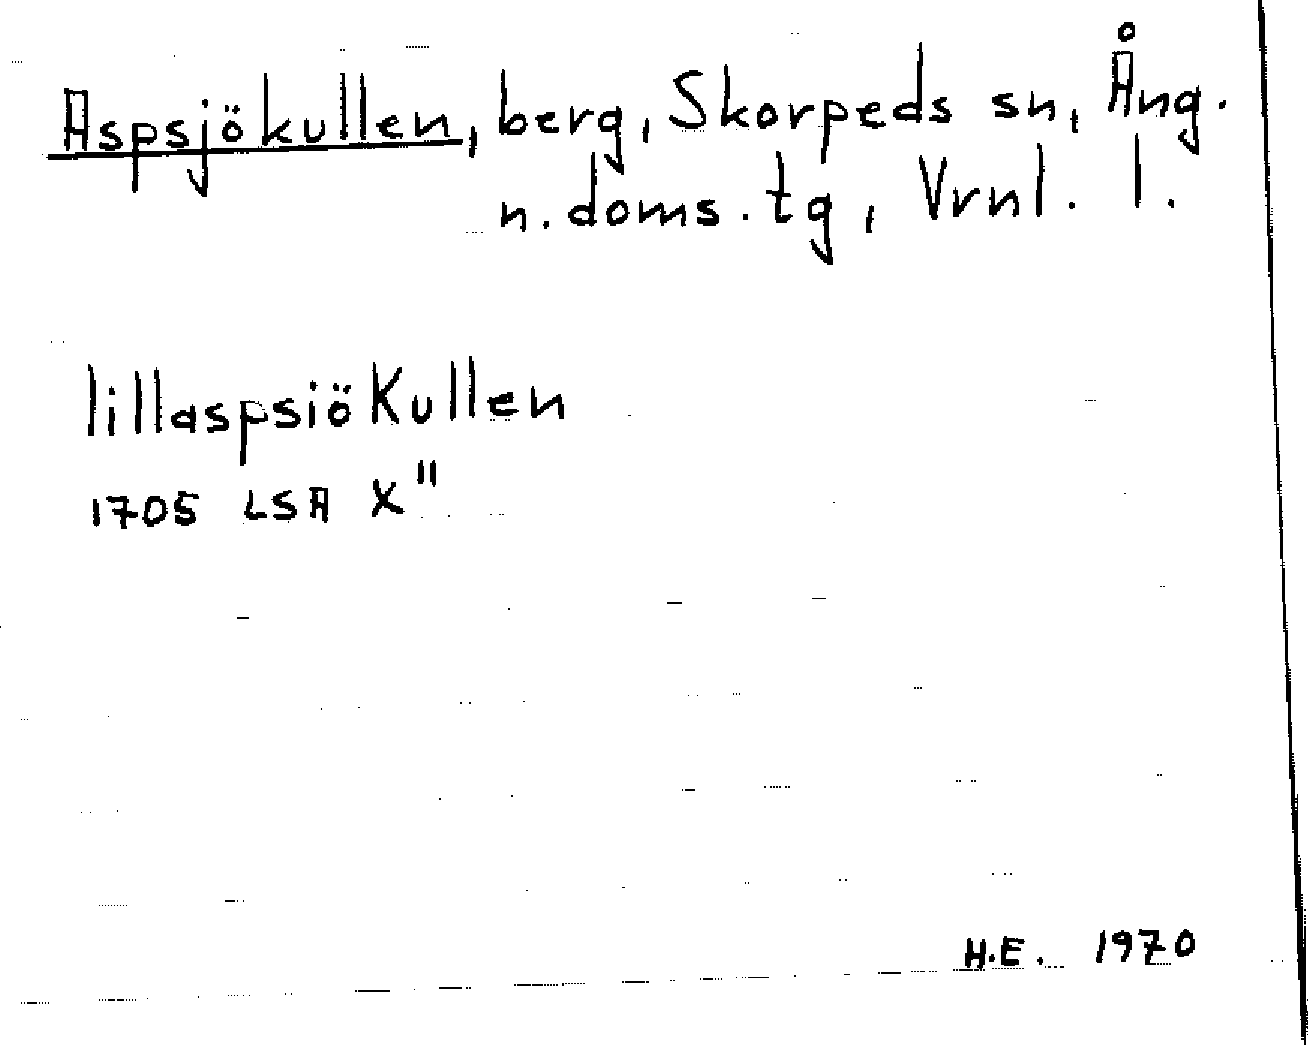 Aspsjökullen, berg, Skorpeds sn, Ång.
n. doms. tg, Vrnl. l.
lillaspsiöKullen
1705 LSA X"
H.E. 1970